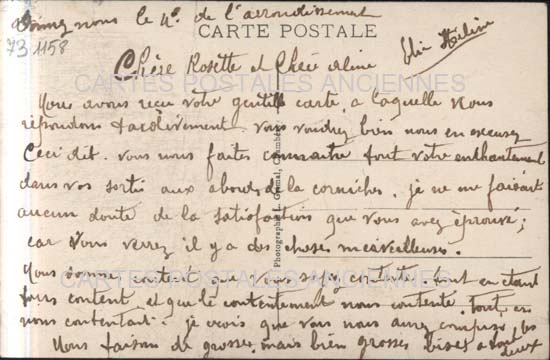 Donnez nous le N° de l'arrondissement
CARTE POSTALE
73 1158
Elie Hélène
Chère Rosette et Chère Aline
CARTES POSTALES ANCIENNES
Nous avons reçu votre gentille carte, a laquelle nous
répondons tardivement. Vous voudrez bien nous en excuser
Ceci dit. vous nous faites connaitre tout votre enchantement
dans vos sortie aux abords de la corniches. je ne me faisait
aucun doute de la satisfaction que vous avez éprouvé;
car vous verrez il y a des choses merveilleuses.
Nous sommes content que vous soyez contente. tout en étant
CARTES POSTALES ANCIENNES
tours content, et que le contentement nous contente. Tout en
nous contentant. je crois que vous nous aurez compris les
Nous faison de grosses, mais bien grosses bises a tout
deux
Photographie L. Grimal, Chambéry